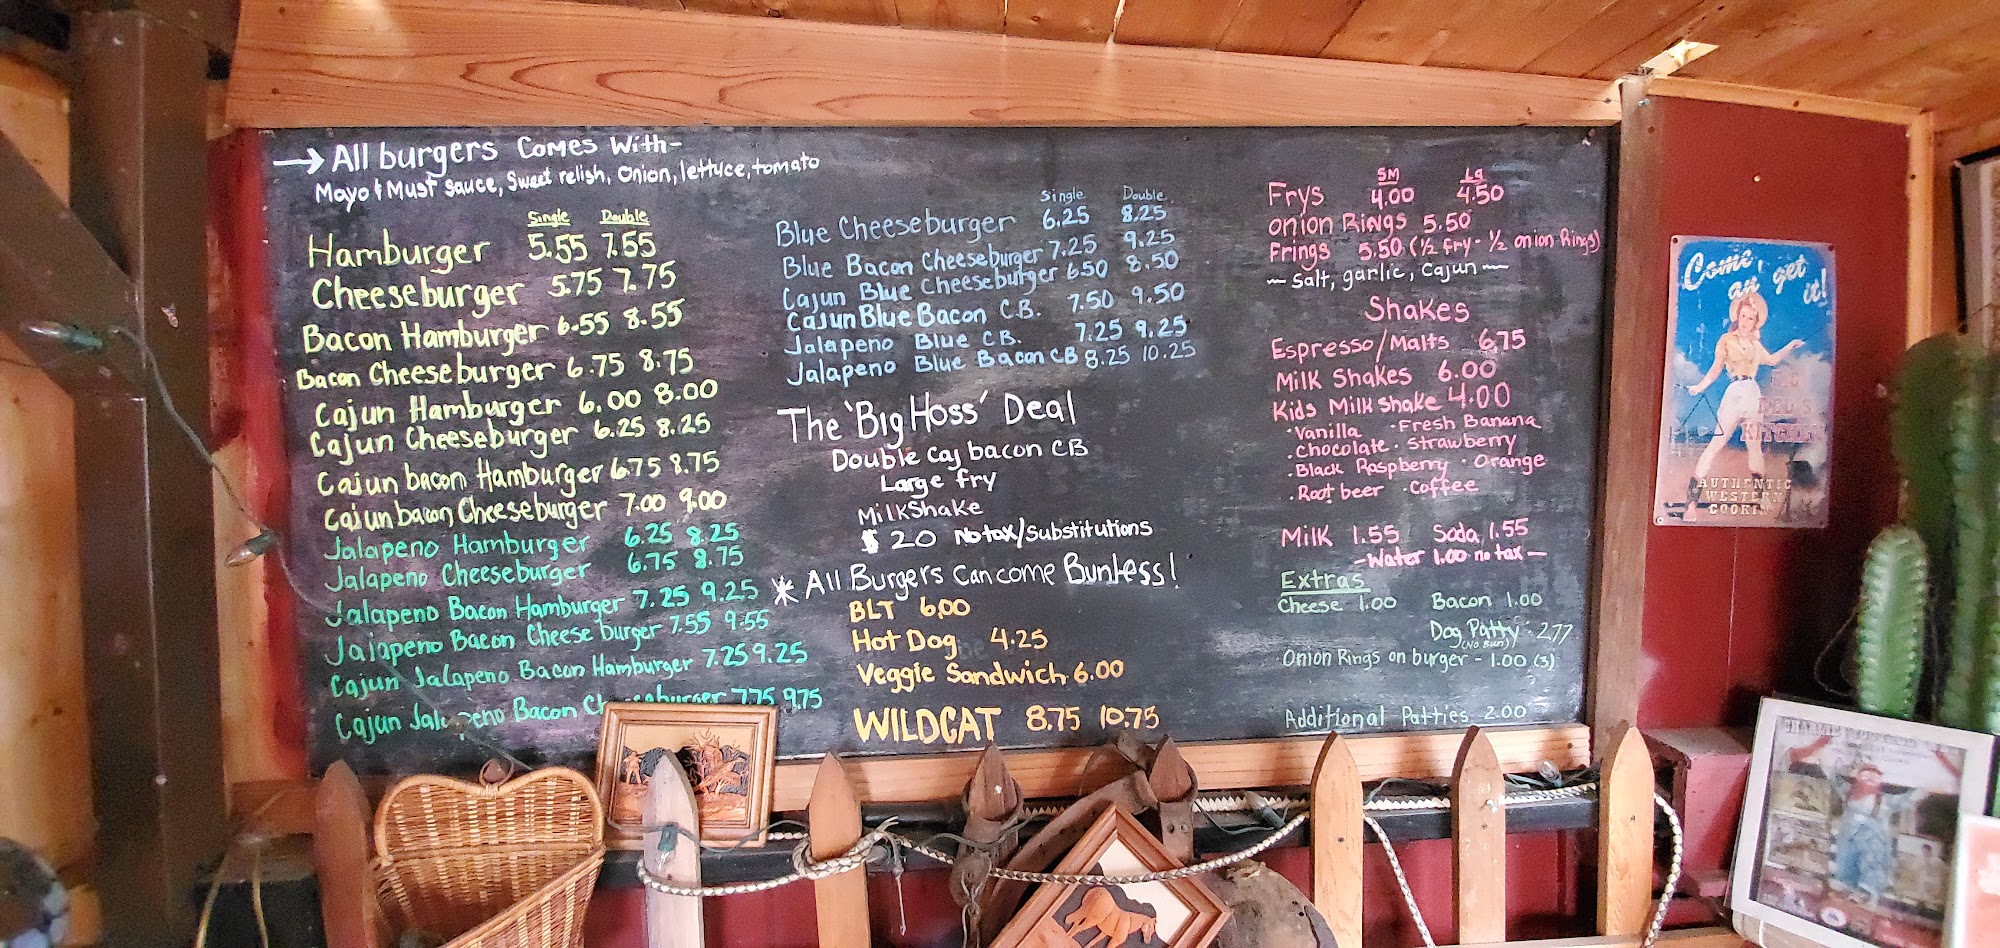 → All burgers Comes With-
Mayo & Must sauce, Sweet relish, Onion, lettuce, tomato
Single Double
Hamburger 5.55 7.55
Cheeseburger 5.75 7.75
Bacon Hamburger 6.55 8.55
Bacon Cheeseburger 6.75 8.75
Cajun Hamburger 6.00 8.00
Cajun Cheeseburger 6.25 8.25
Cajun bacon Hamburger 6.75 8.75
Cajun bacon Cheeseburger 7.00 9.00
Jalapeno Hamburger 6.25 8.25
Jalapeno Cheeseburger 6.75 8.75
Jalapeno Bacon Hamburger 7.25 9.25
Jalapeno Bacon Cheese burger 7.55 9.55
Cajun Jalapeno Bacon Hamburger 7.25 9.25
Cajun Jalapeno Bacon Cheeseburger 7.75 9.75
Single Double
Blue Cheeseburger 6.25 8.25
Blue Bacon Cheeseburger 7.25 9.25
Cajun Blue Cheeseburger 6.50 8.50
Cajun Blue Bacon C.B. 7.50 9.50
Jalapeno Blue CB. 7.25 9.25
Jalapeno Blue Bacon CB 8.25 10.25
The 'Big Hoss' Deal
Double Caj bacon CB
Large fry
MilkShake
$20 No tax/Substitutions
* All Burgers Can come Bunless!
BLT 6.00
Hot Dog 4.25
Veggie Sandwich 6.00
WILDCAT 8.75 10.75
SM Lg
Frys 4.00 4.50
onion Rings 5.50
Frings 5.50 (1/2 fry - 1/2 onion Rings)
~ Salt, garlic, Cajun ~
Shakes
Espresso/Malts 6.75
Milk Shakes 6.00
Kids Milkshake 4.00
·Vanilla ·Fresh Banana
·Chocolate ·Strawberry
·Black Raspberry ·Orange
·Root beer ·Coffee
Milk 1.55 Soda 1.55
-Water 1.00 no tax-
Extras
Cheese 1.00 Bacon 1.00
Dog Patty - 2.77
(No Bun)
Onion Rings on burger - 1.00 (3)
Additional Patties 2.00
Come an' get it!
BIG
RED'S
KITCHEN
AUTHENTIC
WESTERN
COOKIN